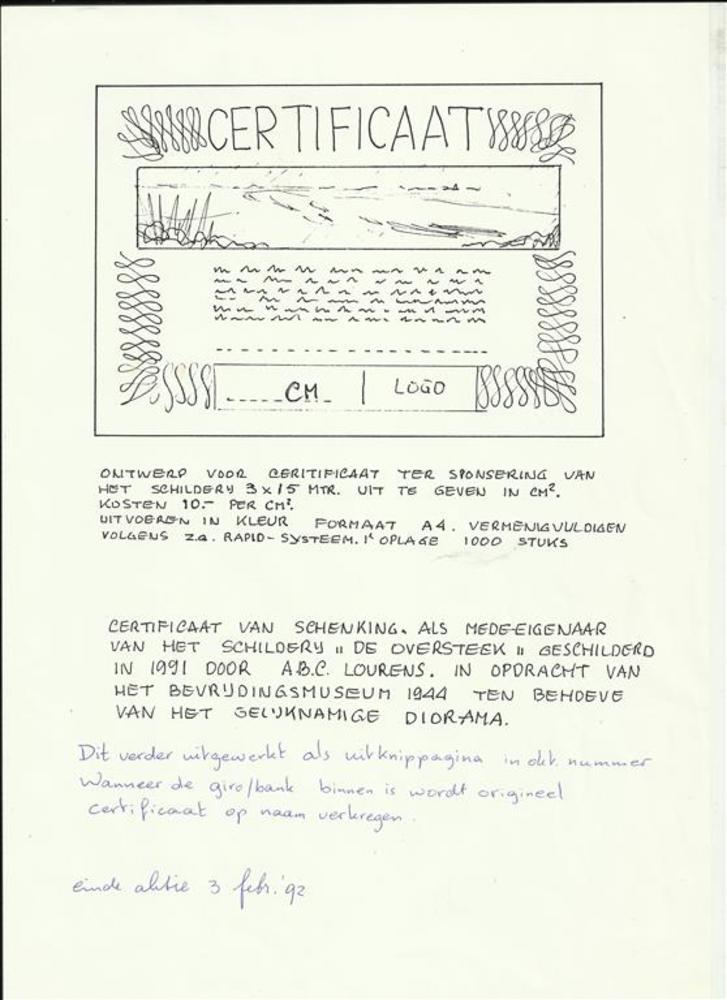 CERTIFICAAT
CM
LOGO
ONTWERP VOOR CERITIFICAAT TER SPONSERING VAN
HET SCHILDERY 3 x 15 MTR. UIT TE GEVEN IN CM².
KOSTEN 10.- PER CM².
UITVOEREN IN KLEUR FORMAAT A4. VERMENIGVULDIGEN
VOLGENS Z.G. RAPID-SYSTEEM. 1ᵉ OPLAGE 1000 STUKS
CERTIFICAAT VAN SCHENKING. ALS MEDE-EIGENAAR
VAN HET SCHILDERY " DE OVERSTEEK " GESCHILDERD
IN 1991 DOOR A.B.C. LOURENS. IN OPDRACHT VAN
HET BEVRIJDINGSMUSEUM 1944 TEN BEHOEVE
VAN HET GELIJKNAMIGE DIORAMA.
Dit verder uitgewerkt als uitknippagina in okt. nummer
Wanneer de giro/bank binnen is wordt origineel
certificaat op naam verkregen.
einde aktie 3 febr. '92